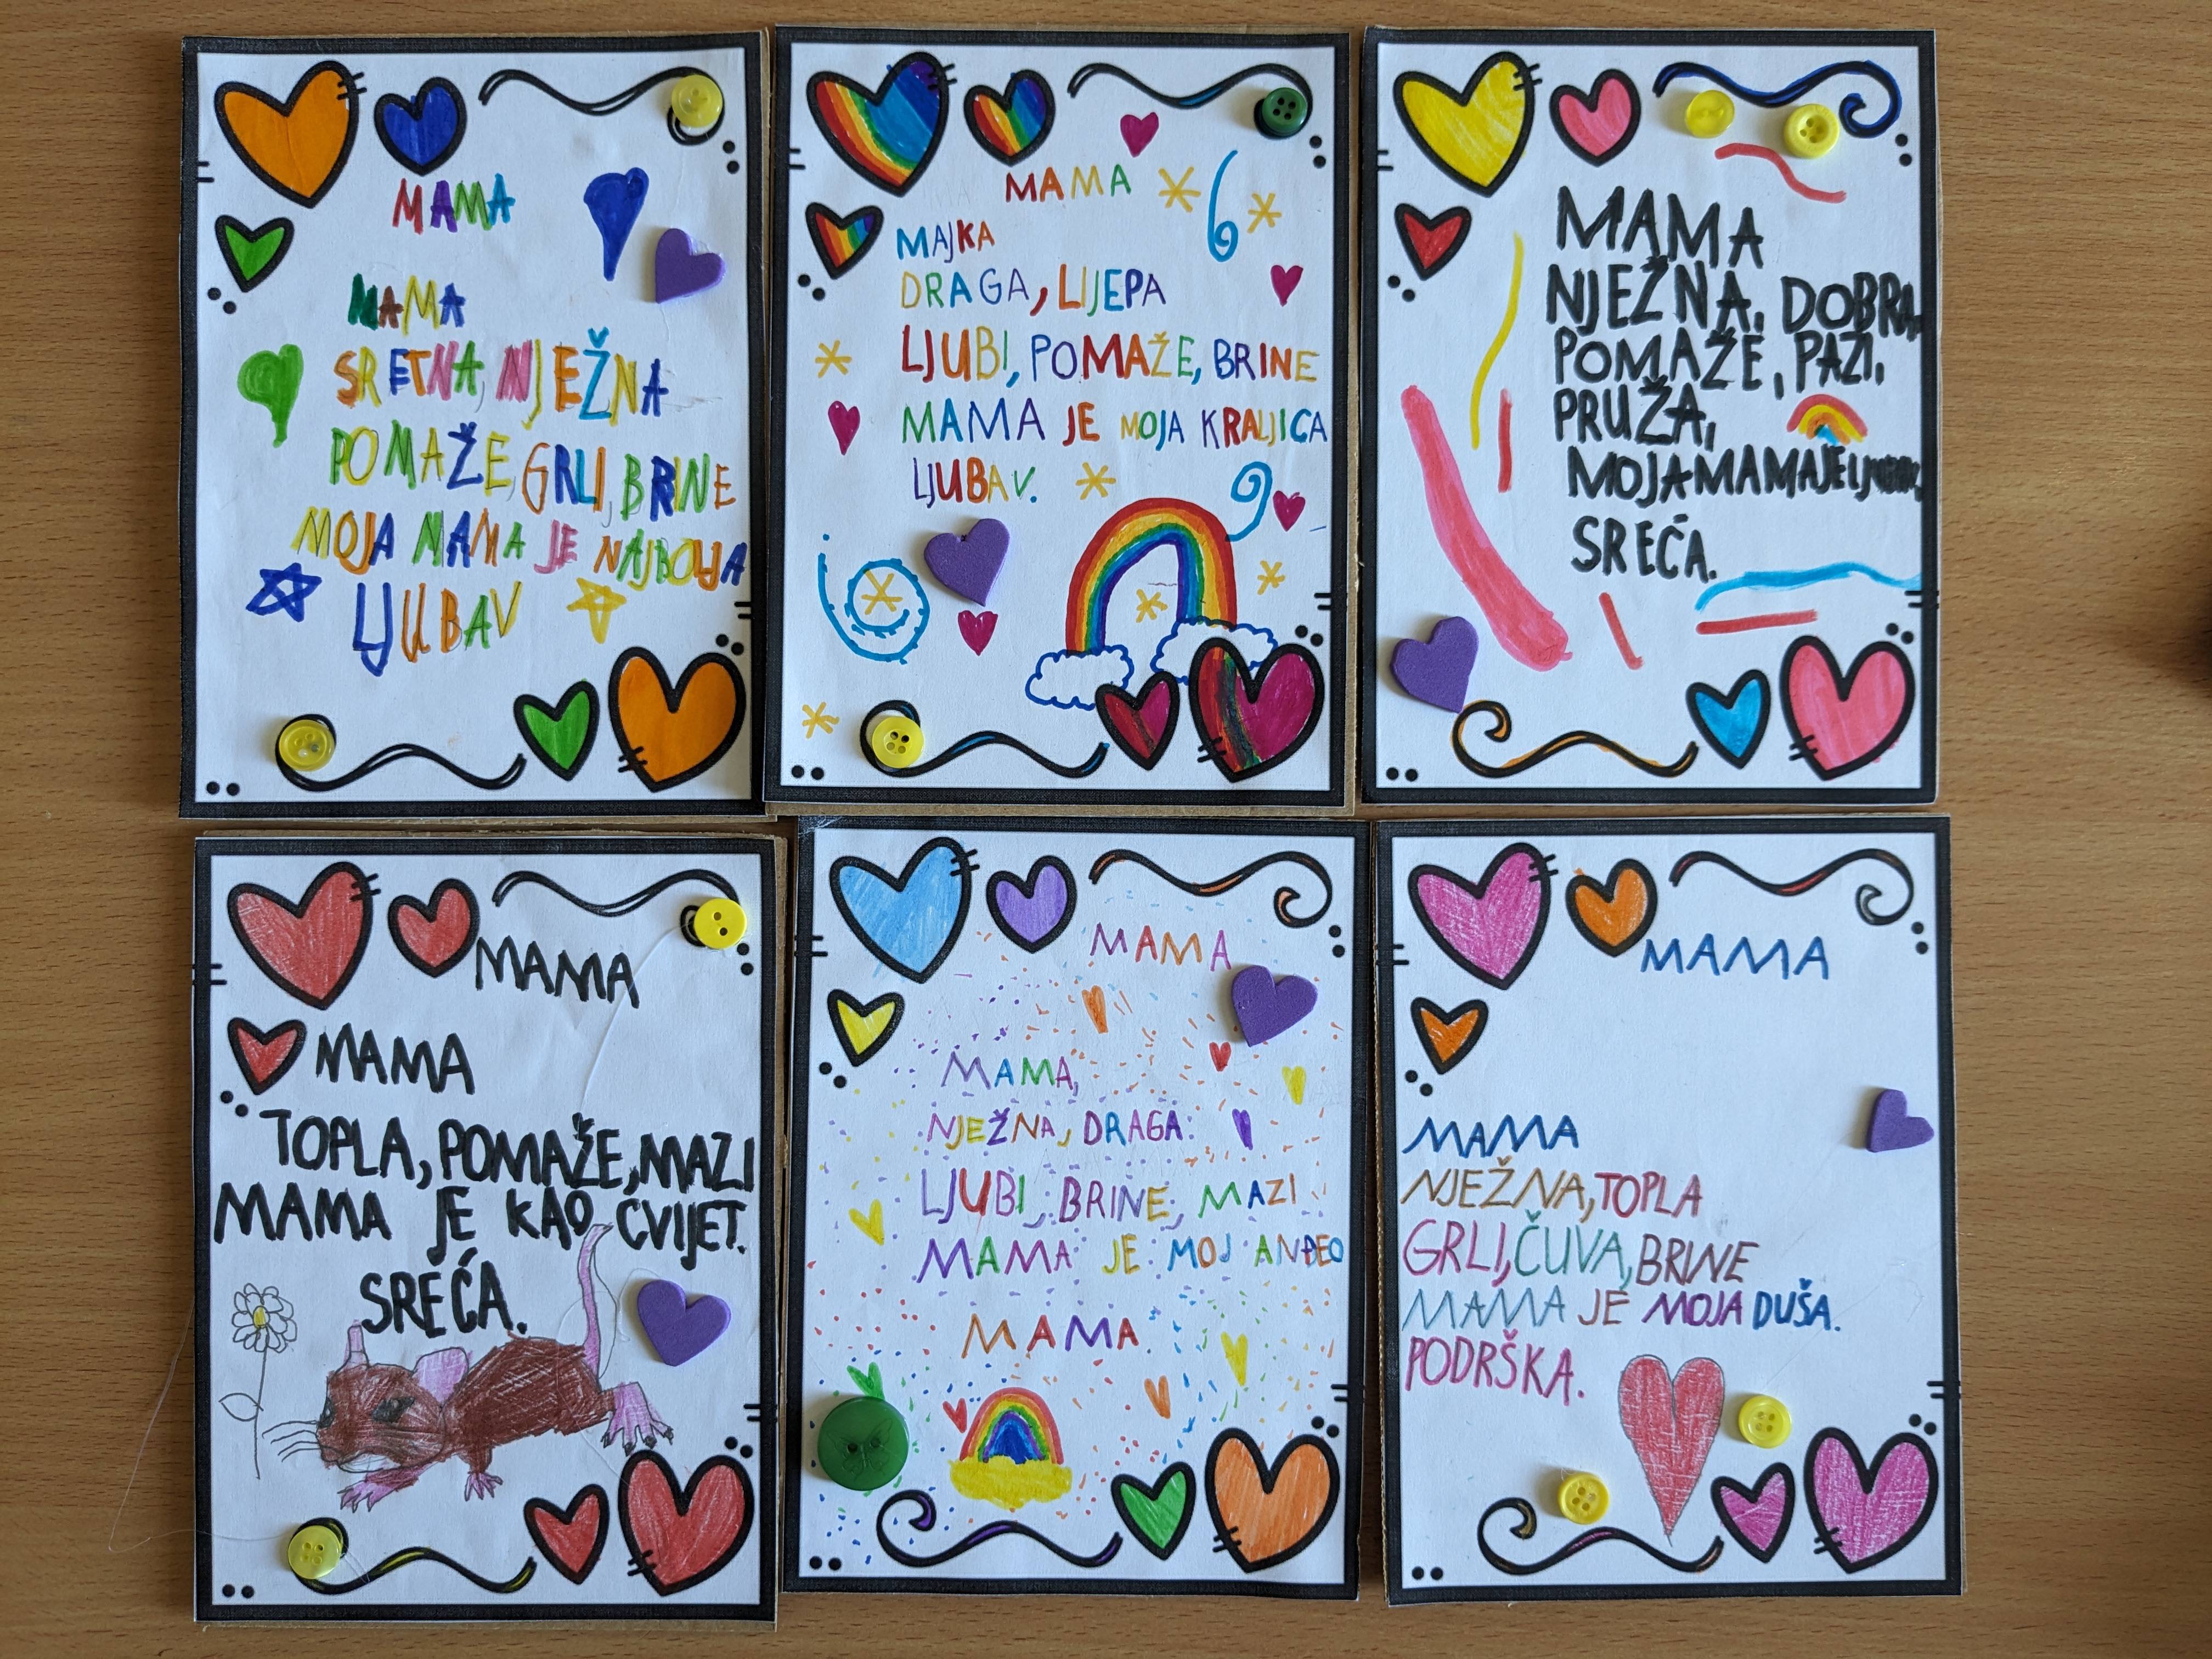 MAMA
MAMA
SRETNA, NJEŽNA
POMAŽE, GRLI, BRINE
MOJA MAMA JE NAJBOLJA
LJUBAV
MAMA
MAJKA
DRAGA, LIJEPA
LJUBI, POMAŽE, BRINE
MAMA JE MOJA KRALJICA
LJUBAV.
MAMA
NJEŽNA, DOBRA,
POMAŽE, PAZI,
PRUŽA,
MOJA MAMA JE
SREĆA.
MAMA
MAMA
TOPLA, POMAŽE, MAZI
MAMA JE KAO CVIJET.
SREĆA.
MAMA
MAMA,
NJEŽNA, DRAGA.
LJUBI, BRINE, MAZI
MAMA JE MOJ ANĐEO
MAMA
MAMA
MAMA
NJEŽNA, TOPLA
GRLI, ČUVA, BRINE
MAMA JE MOJA DUŠA.
PODRŠKA.